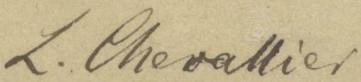 L. Chevallier